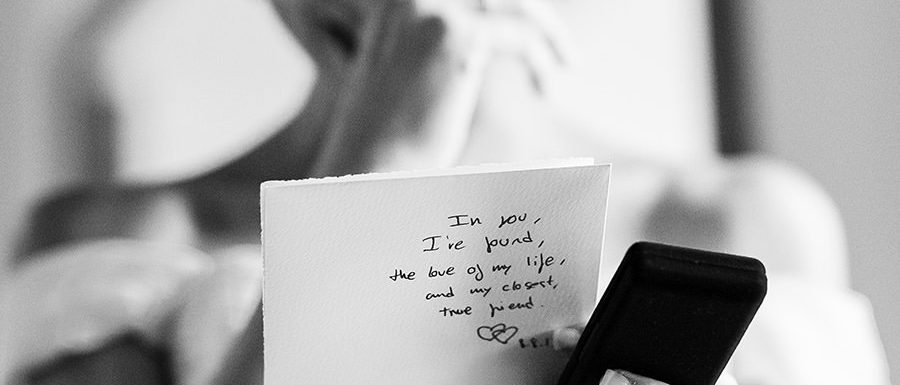 In you,
I've found,
the love of my life,
and my closest,
true friend.